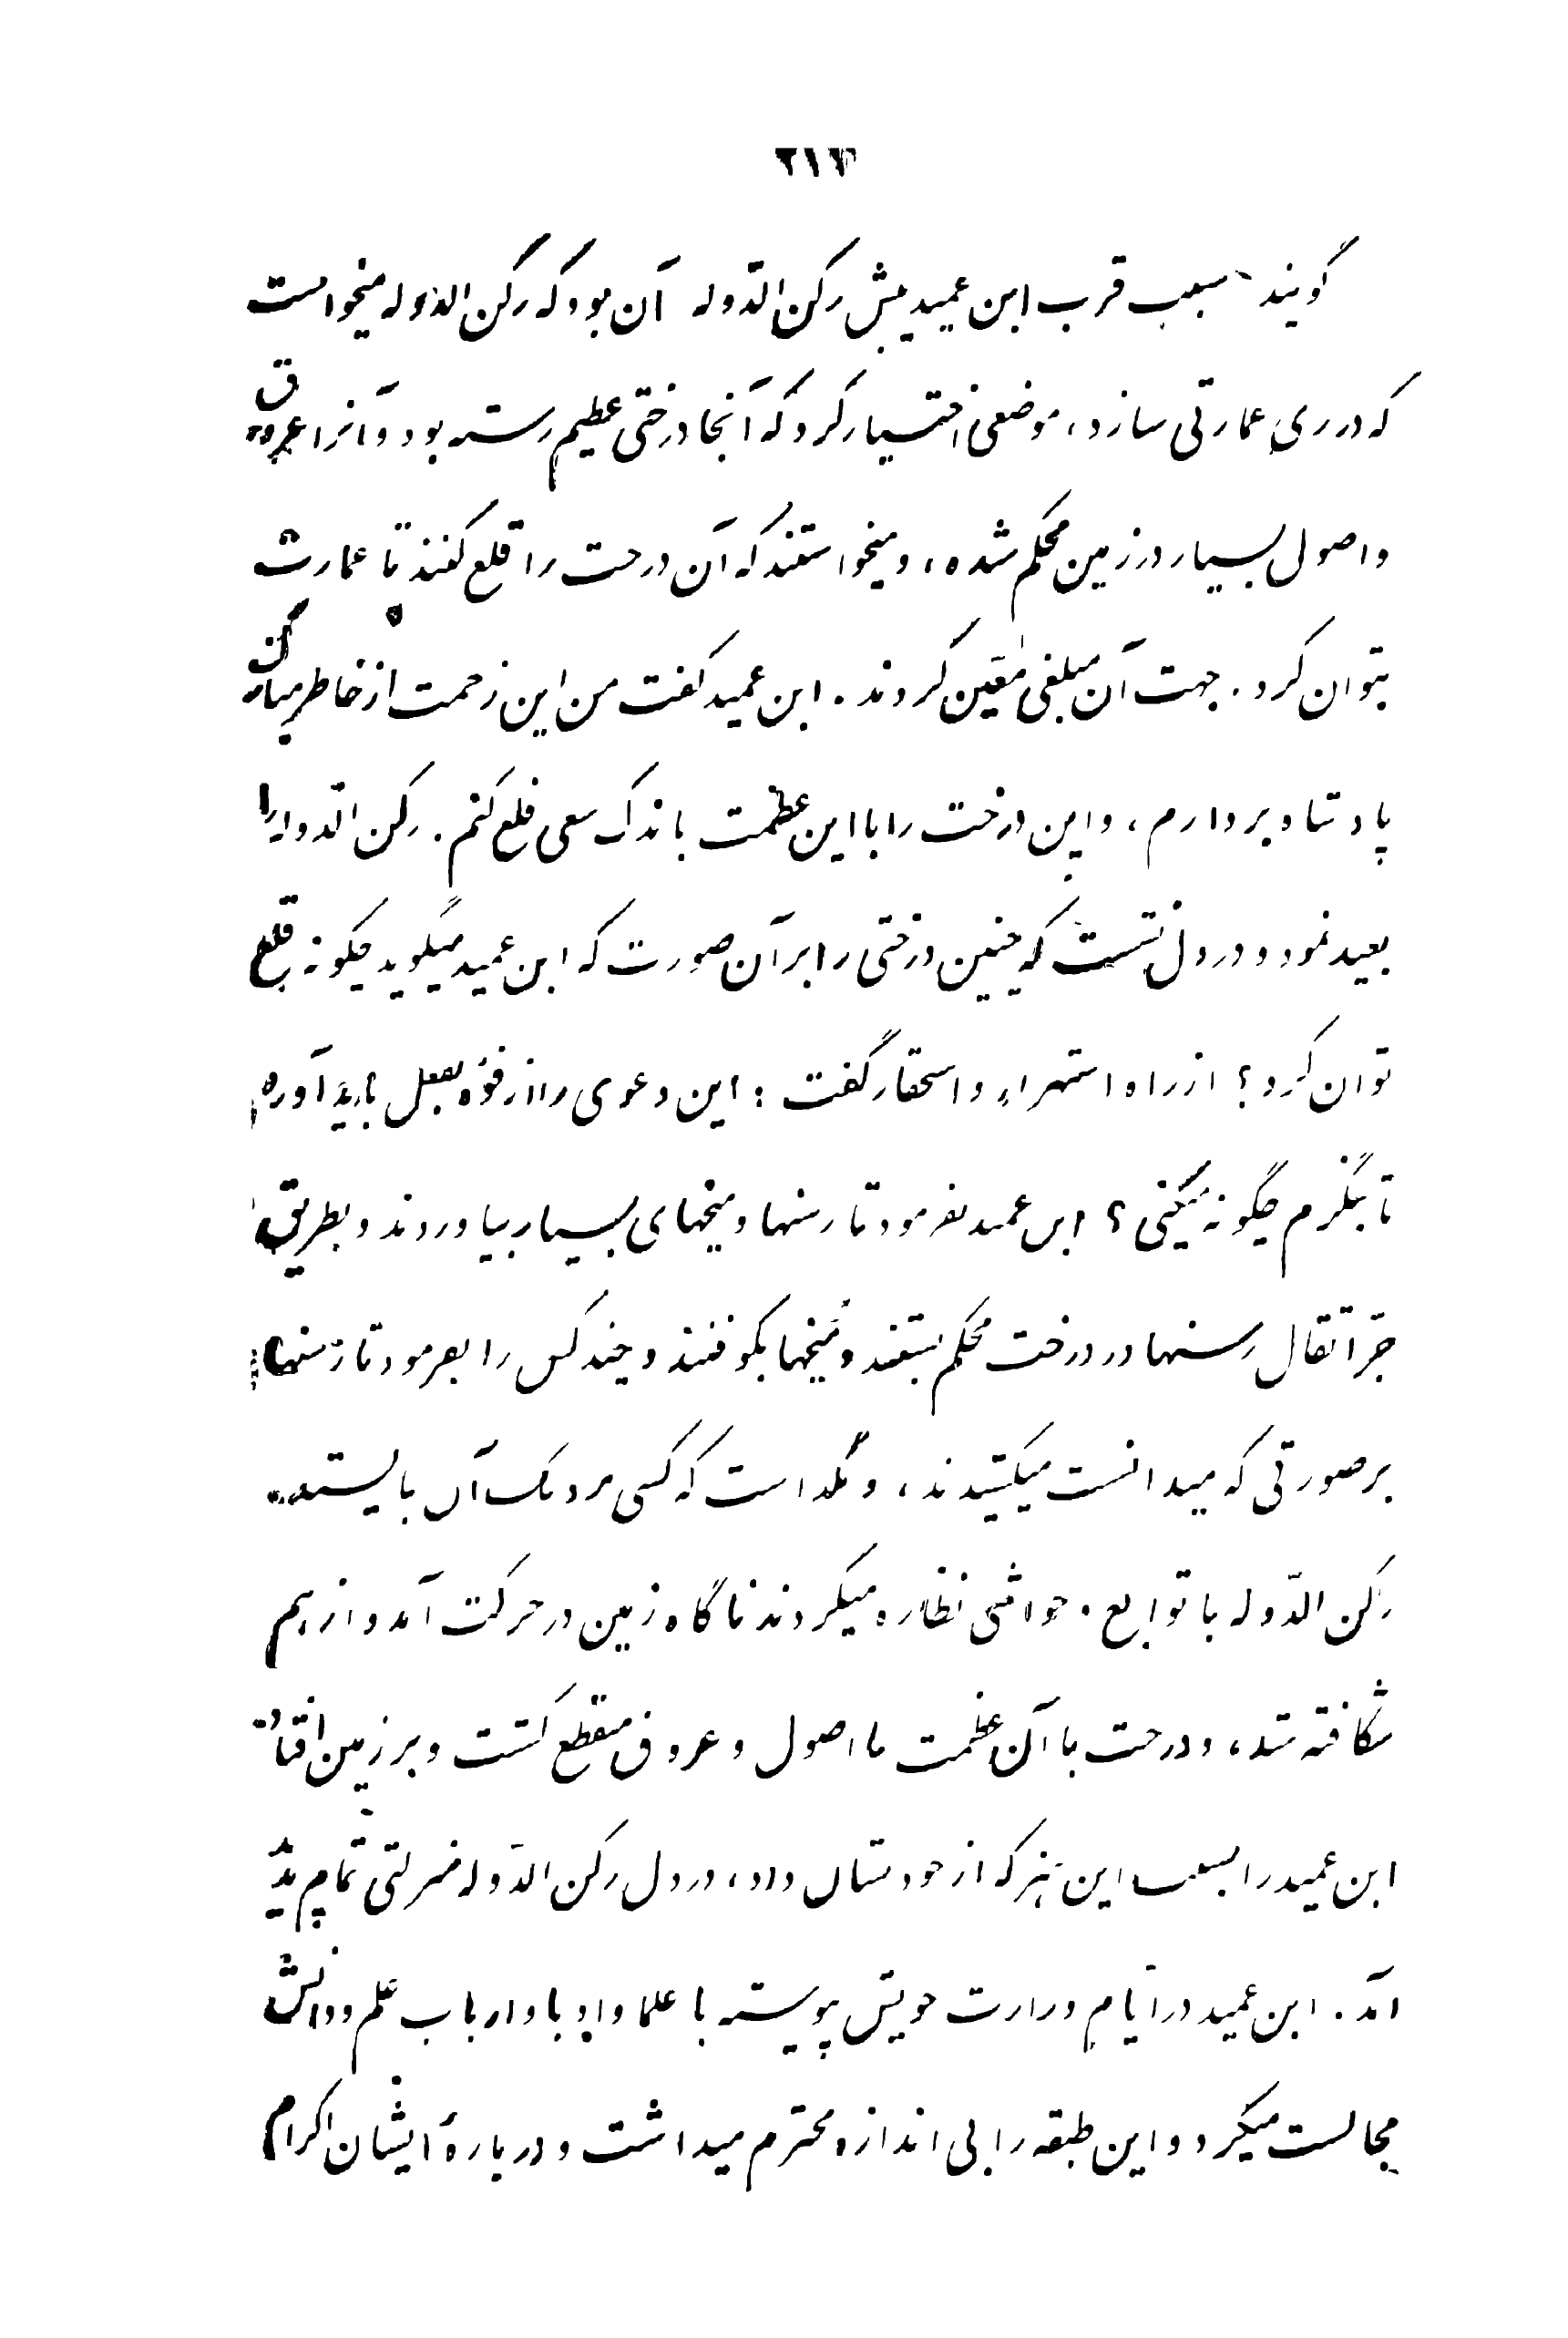 ۲۱۳
گویند سبب قرب ابن عمید پیش رکن الدّوله آن بود که رکن الدّوله میخواست
که در ری عمارتی سازد، موضعی اختیار کرد که آنجا درختی عظیم رسته بود و آنرا عروق
و اصول بسیار در زمین محکم شده، و میخواستند که آن درخت را قلع کنند تا عمارت
بتوان کرد. جهت آن مبلغی معّین کردند. ابن عمید گفت من این زحمت از خاطر مبارک
پادشاه بردارم، و این درخت را با این عظمت باندک سعی قلع کنم. رکن الدّوله را
بعید نمود و در دل نشست که چنین درختی را بر آن صورت که ابن عمید میگوید چگونه قلع
توان کرد؟ از راه استهزاء و استحقار گفت: این دعوی را از قوّه بفعل باید آورد
تا بنگرم چگونه میکنی؟ ابن عمید بفرمود تا رسنها و میخهای بسیار بیاوردند و بطریق
جرّ اثقال رسنها در درخت محکم بستند و میخها بکوفتند و چند کس را بفرمود تا رسنها
بر صورتی که میدانست میکشیدند، و نگذاشت که کسی نزدیک آن بایستد.
رکن الدّوله با توابع و حواشی نظاره میکردند ناگاه زمین در حرکت آمد و از هم
شکافته شد، و درخت با آن عظمت با اصول و عروق منقطع گشت و بر زمین افتاد
ابن عمید را بسبب این هنر که از خود نشان داد، در دل رکن الدّوله منزلتی تمام پدید
آمد. ابن عمید در ایّام وزارت خویش پیوسته با علما و ادبا و ارباب علم و دانش
مجالست میکرد و این طبقه را بی اندازه محترم میداشت و دربارهٔ ایشان اکرام